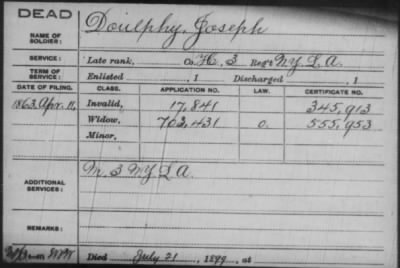 DEAD
NAME OF SOLDIER: Doulphy, Joseph
SERVICE: Late rank, Co. H, 3 Reg't N.Y. L. A.
TERM OF SERVICE: Enlisted , 1 Discharged , 1
DATE OF FILING. CLASS. APPLICATION NO. LAW. CERTIFICATE NO.
1863, Apr. 11, Invalid, 17,841 345,913
Widow, 702,431 O. 555,953
Minor,
ADDITIONAL SERVICES: M. 3 N.Y. L A.
REMARKS:
Died July 21, 1899, at